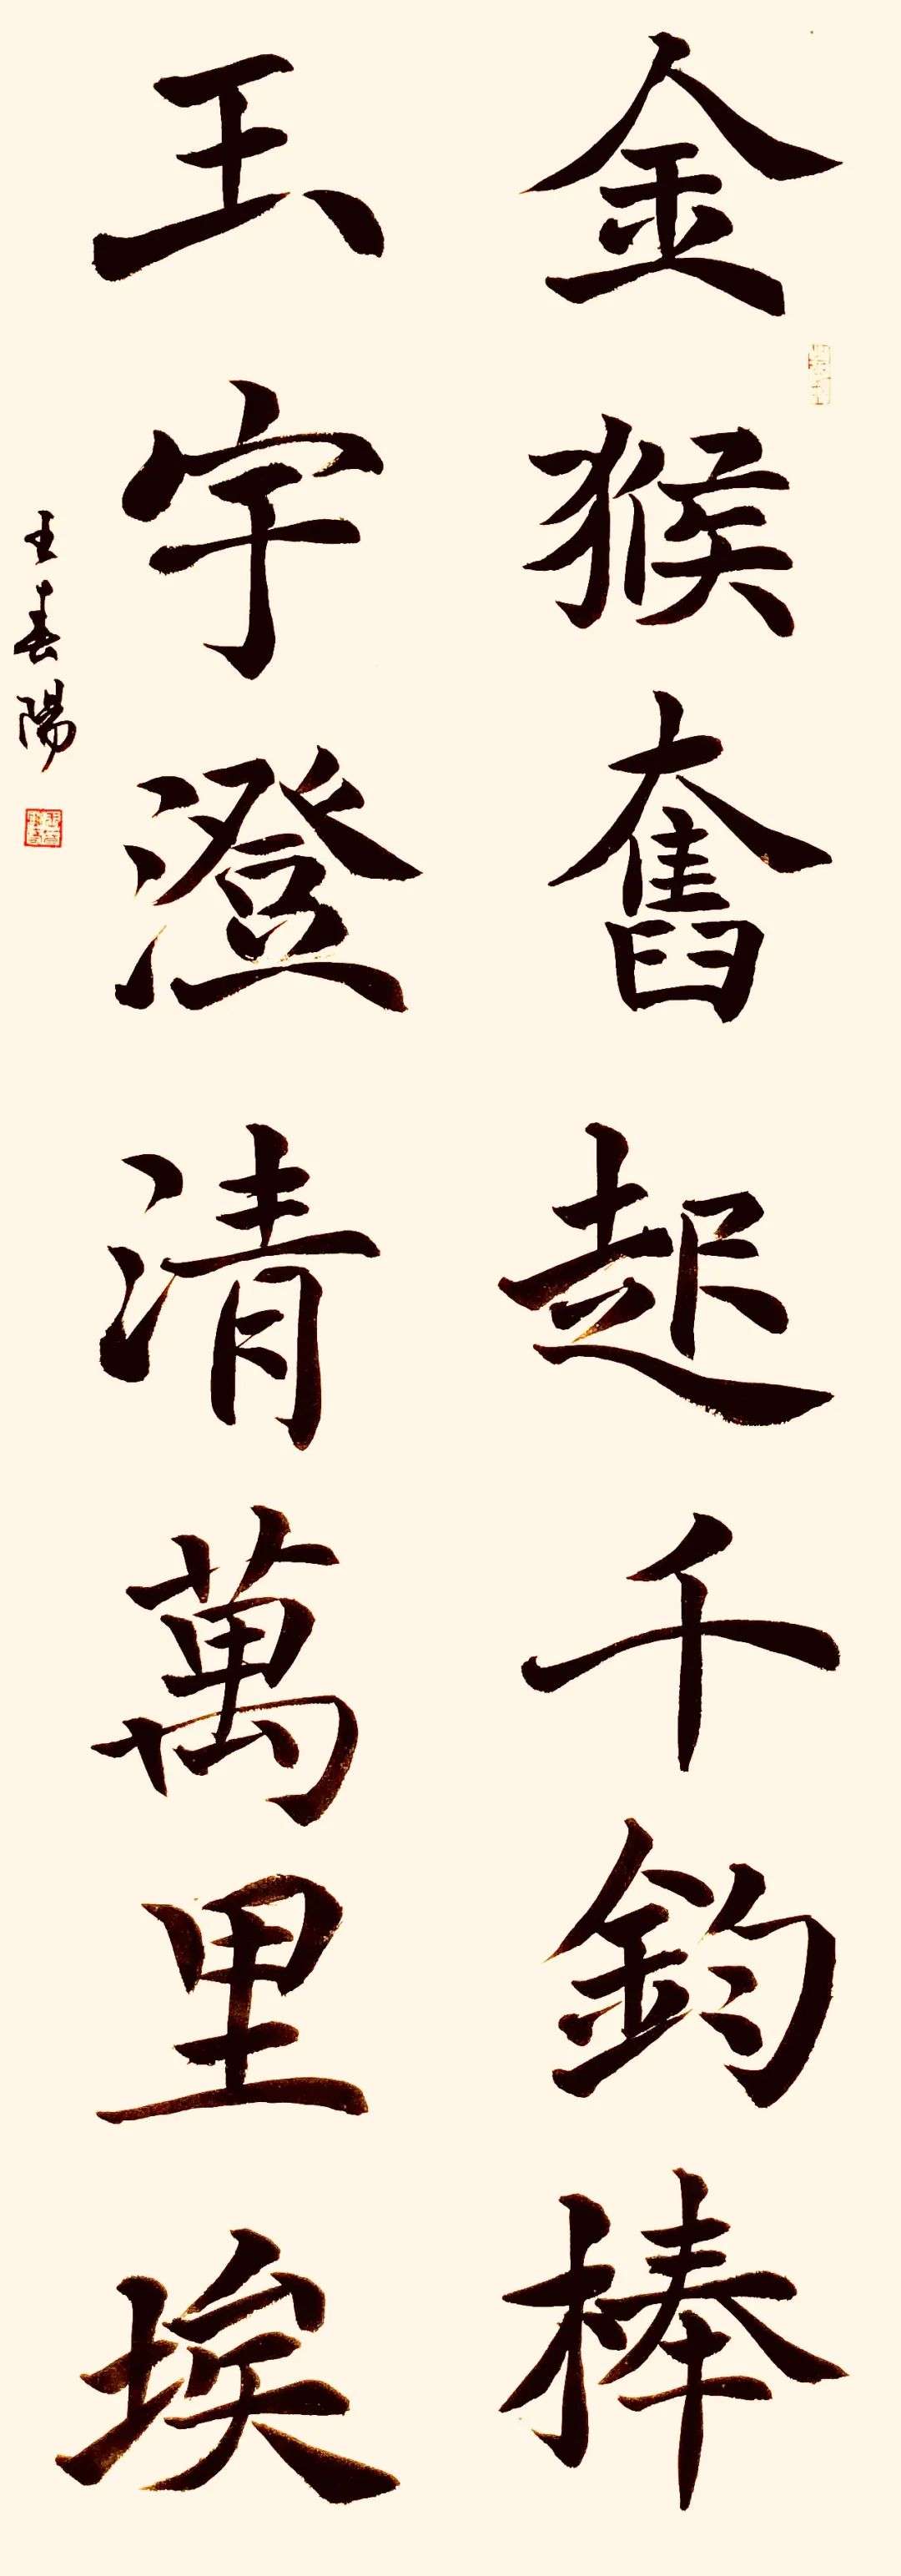 金猴奮起千鈞棒
玉宇澄清萬里埃
王春陽